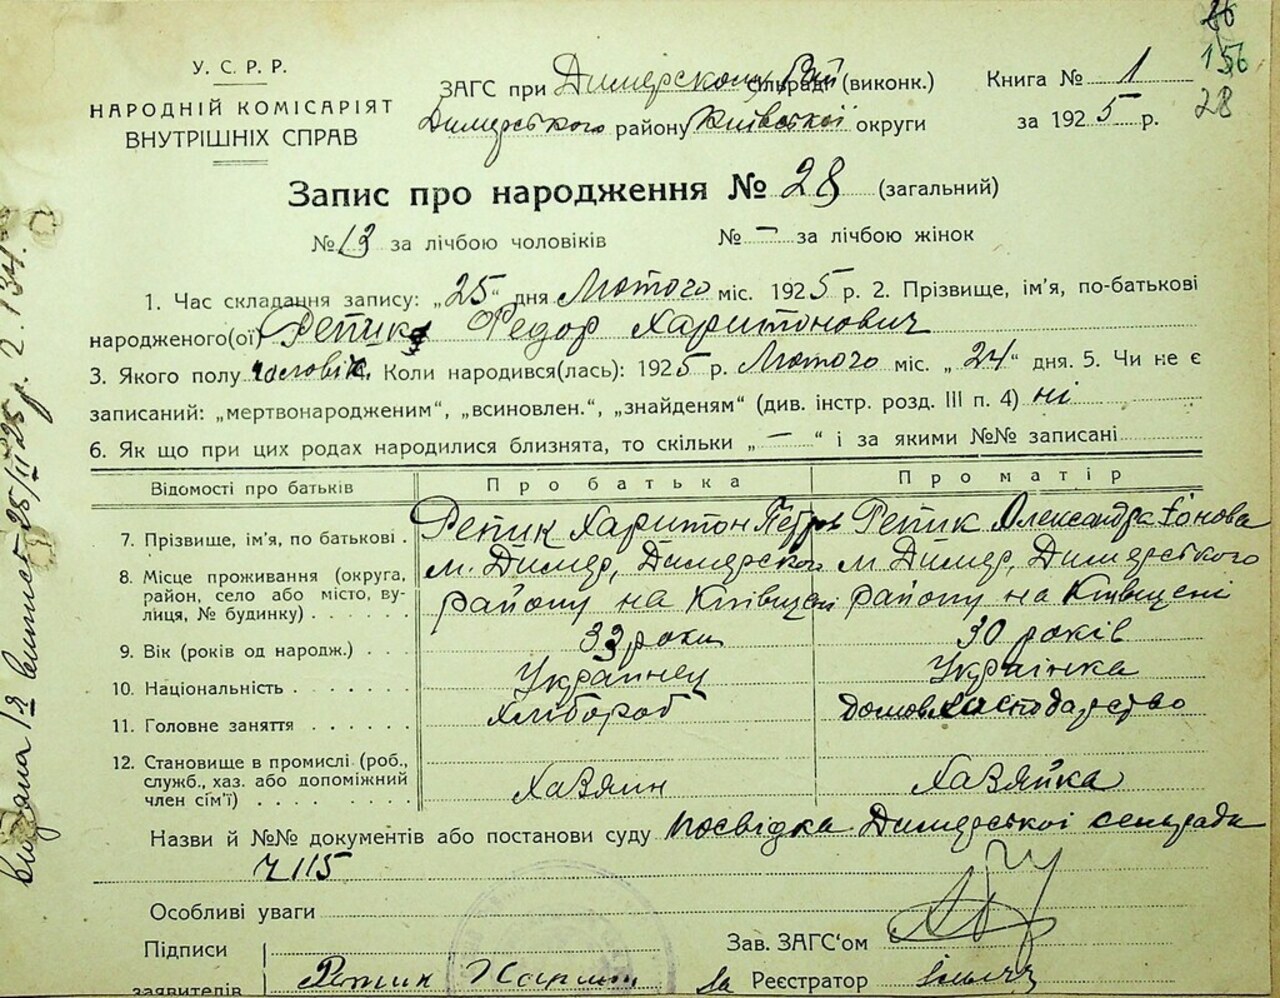 26
156
28
У. С. Р. Р.
НАРОДНІЙ КОМІСАРІЯТ
ВНУТРІШНІХ СПРАВ
ЗАГС при Димерскому Рай сільраді (виконк.)
Димерського району Київської округи
Книга № 1
за 1925 р.
Запис про народження № 28 (загальний)
№ 13 за лічбою чоловіків № — за лічбою жінок
1. Час складання запису: „25“ дня Лютого міс. 1925 р. 2. Прізвище, ім'я, по-батькові
народженого(ої) Репик Федор Харитонович
3. Якого полу чоловік. 4. Коли народився(лась): 1925 р. Лютого міс. „24“ дня. 5. Чи не є
записаний: „мертвонародженим“, „всиновлен.“, „знайденям“ (див. інстр. розд. III п. 4) ні
6. Як що при цих родах народилися близнята, то скільки „—“ і за якими №№ записані
Відомості про батьків Про батька Про матір
7. Прізвище, ім'я, по батькові . Репик Харитон Петров Репик Олександра
8. Місце проживання (округа, район, село або місто, вулиця, № будинку) . . . . . . м. Димер, Димерского району на Київщені м. Димер, Димерського району на Київщені
9. Вік (років од народж.) . . . 33 роки 30 років
10. Національність . . . . . . . Украинец Українка
11. Головне заняття . . . . . . Хлібороб Домовхасподарство
12. Становище в промислі (роб., служб., хаз. або допоміжний член сім'ї) . . . . . . . . . Хазяин Хазяйка
Назви й №№ документів або постанови суду посвідка Димерської сельради
Ч 115
Особливі уваги
Підписи
заявителів Репик Харит
Зав. ЗАГС'ом
За Реєстратор
видана 1я випис 25/II 25 р.